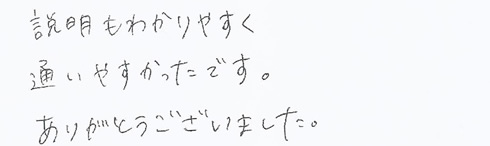 説明もわかりやすく
通いやすかったです。
ありがとうございました。